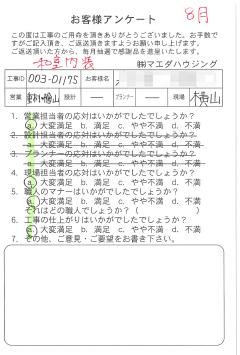 8月
お客様アンケート
この度は工事のご用命を頂きありがとうございました。お手数で
すがご記入頂き、ご返送頂きますようお願い申し上げます。
ご返送頂いた方から、毎月抽選で感謝品を進呈いたします。
和室内装
㈱マエダハウジング
工事ID 003-01175 お客様名
営業 設計 — プランナー — 現場 横山
1. 営業担当者の応対はいかがでしたでしょうか?
a. 大変満足 b. 満足 c. やや不満 d. 不満
2. 設計担当者の応対はいかがでしたでしょうか?
a. 大変満足 b. 満足 c. やや不満 d. 不満
3. プランナーの応対はいかがでしたでしょうか?
a. 大変満足 b. 満足 c. やや不満 d. 不満
4. 現場担当者の応対はいかがでしたでしょうか?
a. 大変満足 b. 満足 c. やや不満 d. 不満
5. 職人のマナーはいかがでしたでしょうか?
a. 大変満足 b. 満足 c. やや不満 d. 不満
それはどの職人でしょうか?( )
6. 工事の仕上がりはいかがでしたでしょうか?
a. 大変満足 b. 満足 c. やや不満 d. 不満
7. その他、ご意見・ご要望をお書き下さい。